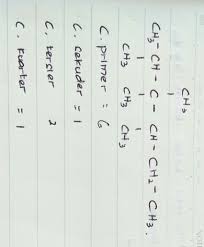 CH3
CH3 - CH - C - CH - CH2 - CH3.
CH3 CH3 CH3
C. primer = 6
C. sekuder = 1
C. tersier 2
C. kuarter = 1